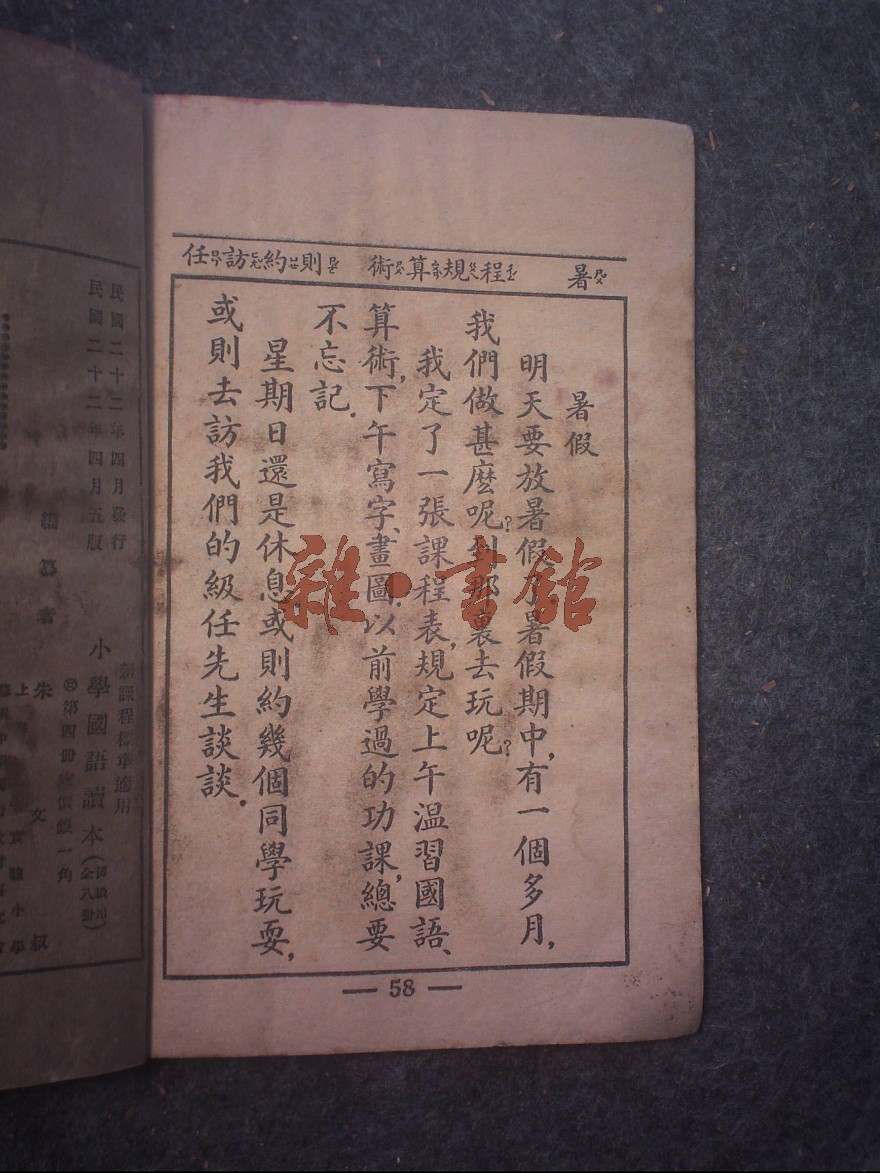 暑 程規算術 則約訪任
暑假
明天要放暑假了,暑假期中,有一個多月,
我們做甚麽呢?到那裏去玩呢?
我定了一張課程表,規定上午温習國語、
算術,下午寫字、畫圖.以前學過的功課,總要
不忘記.
星期日還是休息,或則約幾個同學玩耍,
或則去訪我們的級任先生談談.
58
雜·書館
新課程標準適用
小學國語讀本
(初級用 全八册)
第四册定價銀一角
民國二十二年四月發行
民國二十二年四月五版
編纂者
朱文叔